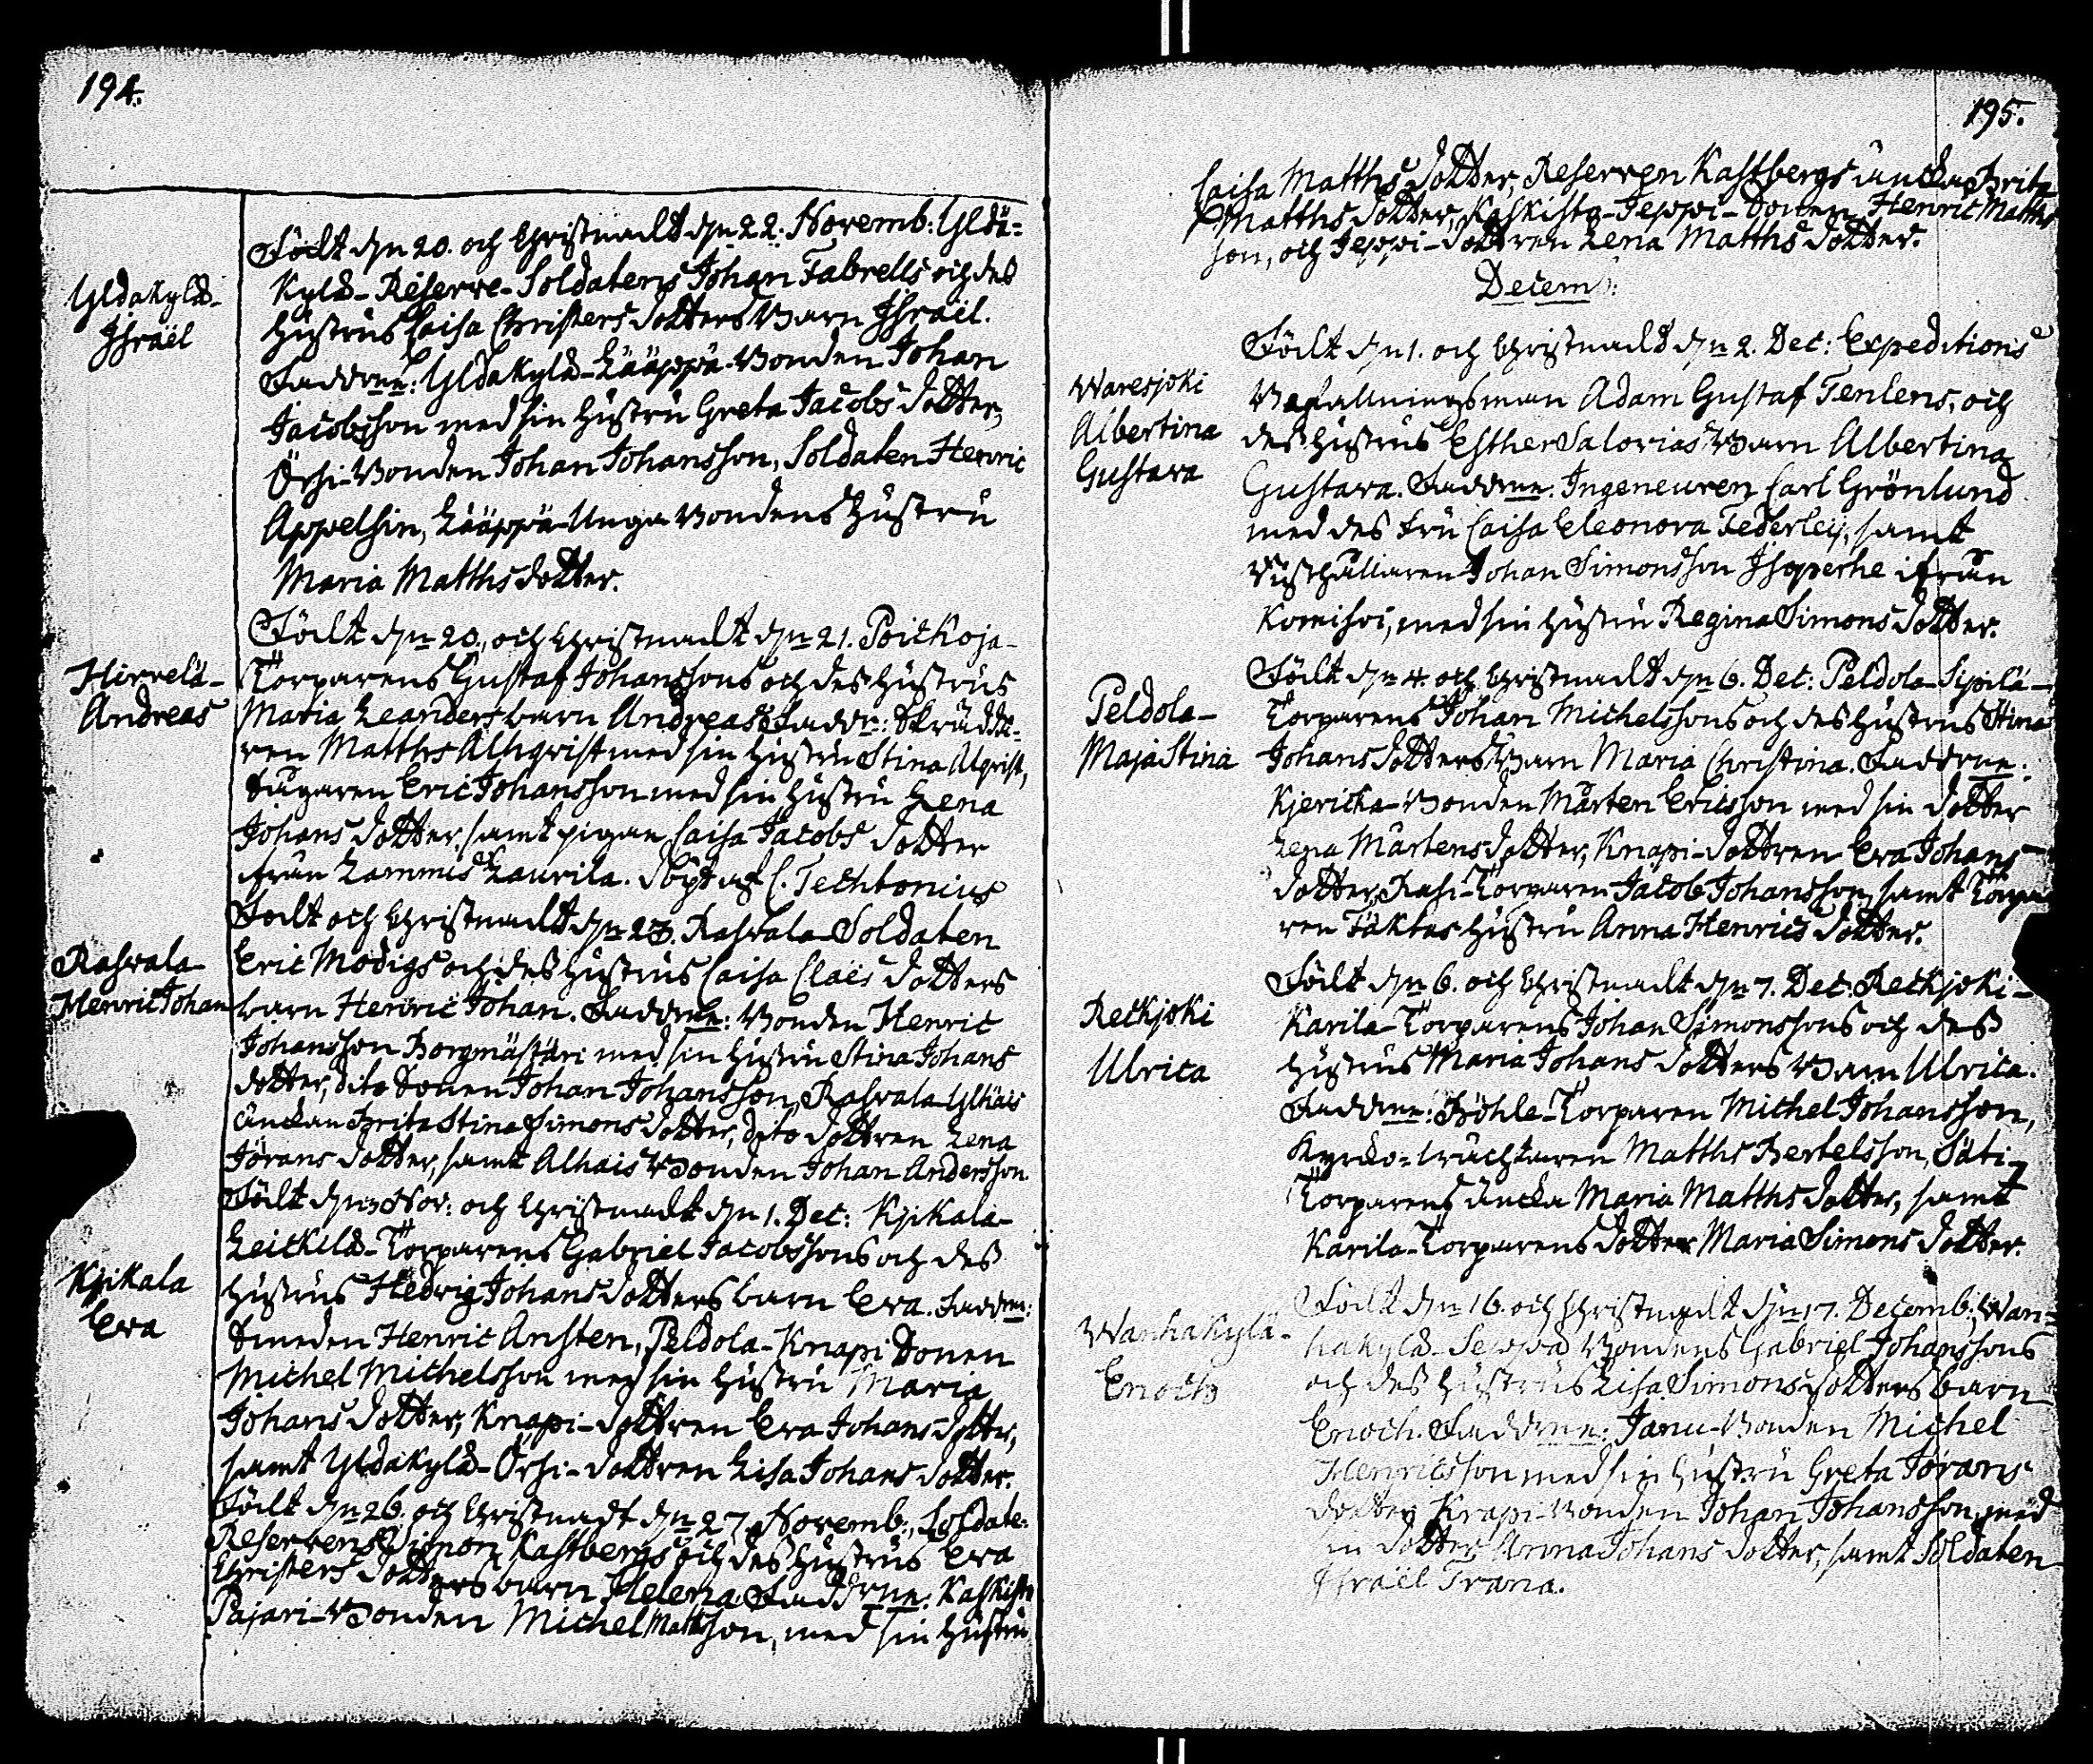 194.
Yldäkylä-
Israël
Födt dn 20. och Christnadt dn 22. Novemb: Yldä-
kylä-Reserve-Soldatens Johan Fabrells och des
hustrus Caisa Christers dotters barn Israël.
Faddrne: Yldäkylä-Lääppä-Bonden Johan
Jacobsson med sin hustru Greta Jacobs dotter,
Örsi-Bonden Johan Johansson, Soldaten Henric
Appelsin, Lääppä-Unga Bondens hustru
Maria Matths dotter.
Hirvelä-
Andreas
Födt dn 20., och Christnadt dn 21. Poickoja-
Torparens Gustaf Johanssons och des hustrus
Maria Leanders barn Andreas. Faddr: Skrädda-
ren Matths Alhqvist med sin hustru Stina Alqvist,
Sågaren Eric Johansson med sin hustru Lena
Johans dotter, samt pigan Caisa Jacobs dotter
från Lammis Laurila. Döpt af C. Techtonius
Rasvala-
Henric Johan
Födt och Christnadt dn 23. Rasvala-Soldaten
Eric Modigs och des hustrus Caisa Claës dotters
barn Henric Johan. Faddrne: Bonden Henric
Johansson Borgmästäri med sin hustru Stina Johans
dotter, dito Sonen Johan Johansson, Rasvala-Ylhäis
änckan Brita Stina Simons dotter, dito dottren Lena
Jörans dotter, samt Alhais Bonden Johan Andersson
Kjikala
Eva
Födt dn Nov: och Christnadt dn 1. Dec: Kjikala-
Leickilä-Torparens Gabriel Jacobssons och des
hustrus Hedvig Johans dotters barn Eva. Faddrne:
Smeden Henric Ansten, Peldola-Knapi Sonen
Michel Michelsson med sin hustru Maria
Johans dotter, Knapi-dottren Eva Johans dotter,
samt Yldäkylä-Örsi-dottren Lisa Johans dotter.
Födt dn 26. och Christnadt dn 27. Novemb:, Soldate-
Reservens Simon Kastbergs och des hustrus Eva
Christers dotters barn Helena. Faddrne: Kaskisto
Pajari-Bonden Michel Mattsson, med sin hustru
195.
Caisa Matths dotter, Reserven Kastbergs äncka Brita
Matths dotter, Kaskisto-Jeppi-Sonen Henric Matths
son, och Jeppi-dottren Lena Matths dotter.
Decem:
Waresjoki
Albertina
Gustava
Födt dn 1. och Christnadt dn 2. Dec: Expeditions
Befallningsman Adam Gustaf Tenlens, och
des hustrus Esther Salovias Barn Albertina
Gustava. Faddrne: Ingeneuren Carl Grönlund
med des Fru Caisa Eleonora Federley, samt
Rusthållaren Johan Simonsson Isoperhe ifrån
Komisoi, med sin hustru Regina Simons dotter.
Peldola-
Maja Stina
Födt dn 4. och Christnadt dn 6. Dec: Peldola-Sipilä-
Torparens Johan Michelssons och des hustrus Stina
Johans dotters Barn Maria Christina. Faddrne:
Kjericka-Bonden Mårten Ericsson med sin dotter
Lena Mårtens dotter, Knapi-dottren Eva Johans
dotter, Rasi-Torparen Jacob Johansson, samt Torpa
ren Täktes hustru Anna Henrics dotter.
Reckjoki
Ulrica
Födt dn 6. och Christnadt dn 7. Dec: Reckjoki-
Karila-Torparens Johan Simonssons och des
hustrus Maria Johans dotters Barn Ulrica.
Faddrne: Böhle-Torparen Michel Johansson,
Kyrcko-wächtaren Matths Bertelsson, Säti-
Torparens äncka Maria Matths dotter, samt
Karila-Torparens dotter Maria Simons dotter.
Wanhakylä-
Enoch
Födt dn 16. och Christnadt dn 17. Decemb: Wan-
hakylä-Seppä Bondens Gabriel Johanssons
och des hustrus Lisa Simons dotters barn
Enoch. Faddrne: Janu-Bonden Michel
Henricsson med sin hustru Greta Jörans
dotter, Krapi-Bonden Johan Johansson, med
sin dotter Anna Johans dotter, samt Soldaten
Israël Trana.